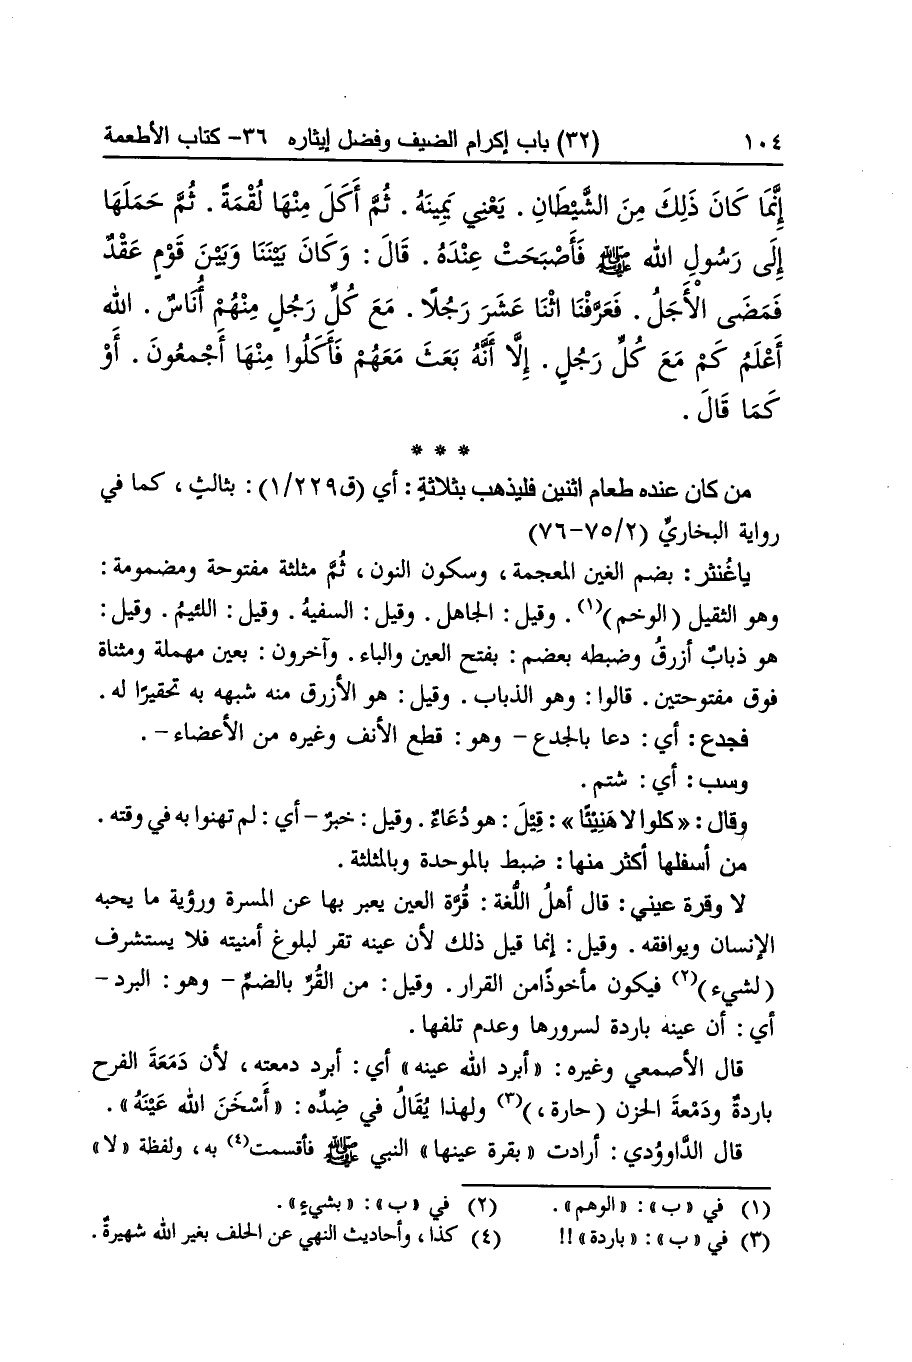 ١٠٤ (٣٢) باب إكرام الضيف وفضل إيثاره ٣٦- كتاب الأطعمة
إِنَّمَا كَانَ ذَلِكَ مِنَ الشَّيْطَانِ . يَعْنِي يَمِينَهُ . ثُمَّ أَكَلَ مِنْهَا لُقْمَةً . ثُمَّ حَمَلَهَا
إِلَى رَسُولِ الله ﷺ فَأَصْبَحَتْ عِنْدَهُ . قَالَ : وَكَانَ بَيْنَنَا وَبَيْنَ قَوْمٍ عَقْدٌ
فَمَضَى الْأَجَلُ . فَعَرَّفْنَا اثْنَا عَشَرَ رَجُلًا . مَعَ كُلِّ رَجُلٍ مِنْهُمْ أُنَاسٌ . الله
أَعْلَمُ كَمْ مَعَ كُلِّ رَجُلٍ . إِلَّا أَنَّهُ بَعَثَ مَعَهُمْ فَأَكَلُوا مِنْهَا أَجْمعُونَ . أَوْ
كَمَا قَالَ .
* * *
من كان عنده طعام اثنين فليذهب بثلاثةٍ : أي (ق١/٢٢٩) : بثالثٍ ، كما في
رواية البخاريِّ (٧٥/٢-٧٦)
ياغُنثر : بضم الغين المعجمة ، وسكون النون ، ثُمَّ مثلثة مفتوحة ومضمومة :
وهو الثقيل (الوخم)(١) . وقيل : الجاهل . وقيل : السفيهُ . وقيل : اللئيمُ . وقيل :
هو ذبابٌ أزرقُ وضبطه بعضم : بفتح العين والباء . وآخرون : بعين مهملة ومثناة
فوق مفتوحتين . قالوا : وهو الذباب . وقيل : هو الأزرق منه شبهه به تحقيرًا له .
فجدع : أي : دعا بالجدع - وهو : قطع الأنف وغيره من الأعضاء - .
وسب : أي : شتم .
وقال : «كلوا لا هَنِيْئًا» : قِيْلَ : هو دُعَاءٌ . وقيل : خبرٌ - أي : لم تهنوا به في وقته .
من أسفلها أكثر منها : ضبط بالموحدة وبالمثلثة .
لا وقرة عيني : قال أهلُ اللُّغة : قُرَّة العين يعبر بها عن المسرة ورؤية ما يحبه
الإنسان ويوافقه . وقيل : إنما قيل ذلك لأن عينه تقر لبلوغ أمنيته فلا يستشرف
(لشيء)(٢) فيكون مأخوذًامن القرار . وقيل : من القُرِّ بالضمِّ - وهو : البرد -
أي : أن عينه باردة لسرورها وعدم تلفها .
قال الأصمعي وغيره : «أبرد الله عينه» أي : أبرد دمعته ، لأن دَمَعَةَ الفرح
باردةٌ ودَمْعةَ الحزن (حارة ،)(٣) ولهذا يُقَالُ في ضِدِّه : «أَسْخَنَ الله عَيْنَهُ» .
قال الدَّاووُدي : أرادت «بقرة عينها» النبي ﷺ فأقسمت(٤) به ، ولفظة «لا»
(١) في «ب» : «الوهم» . (٢) في «ب» : «بشيءٍ» .
(٣) في «ب» : «باردة» !! (٤) كذا ، وأحاديث النهي عن الحلف بغير الله شهيرةٌ .